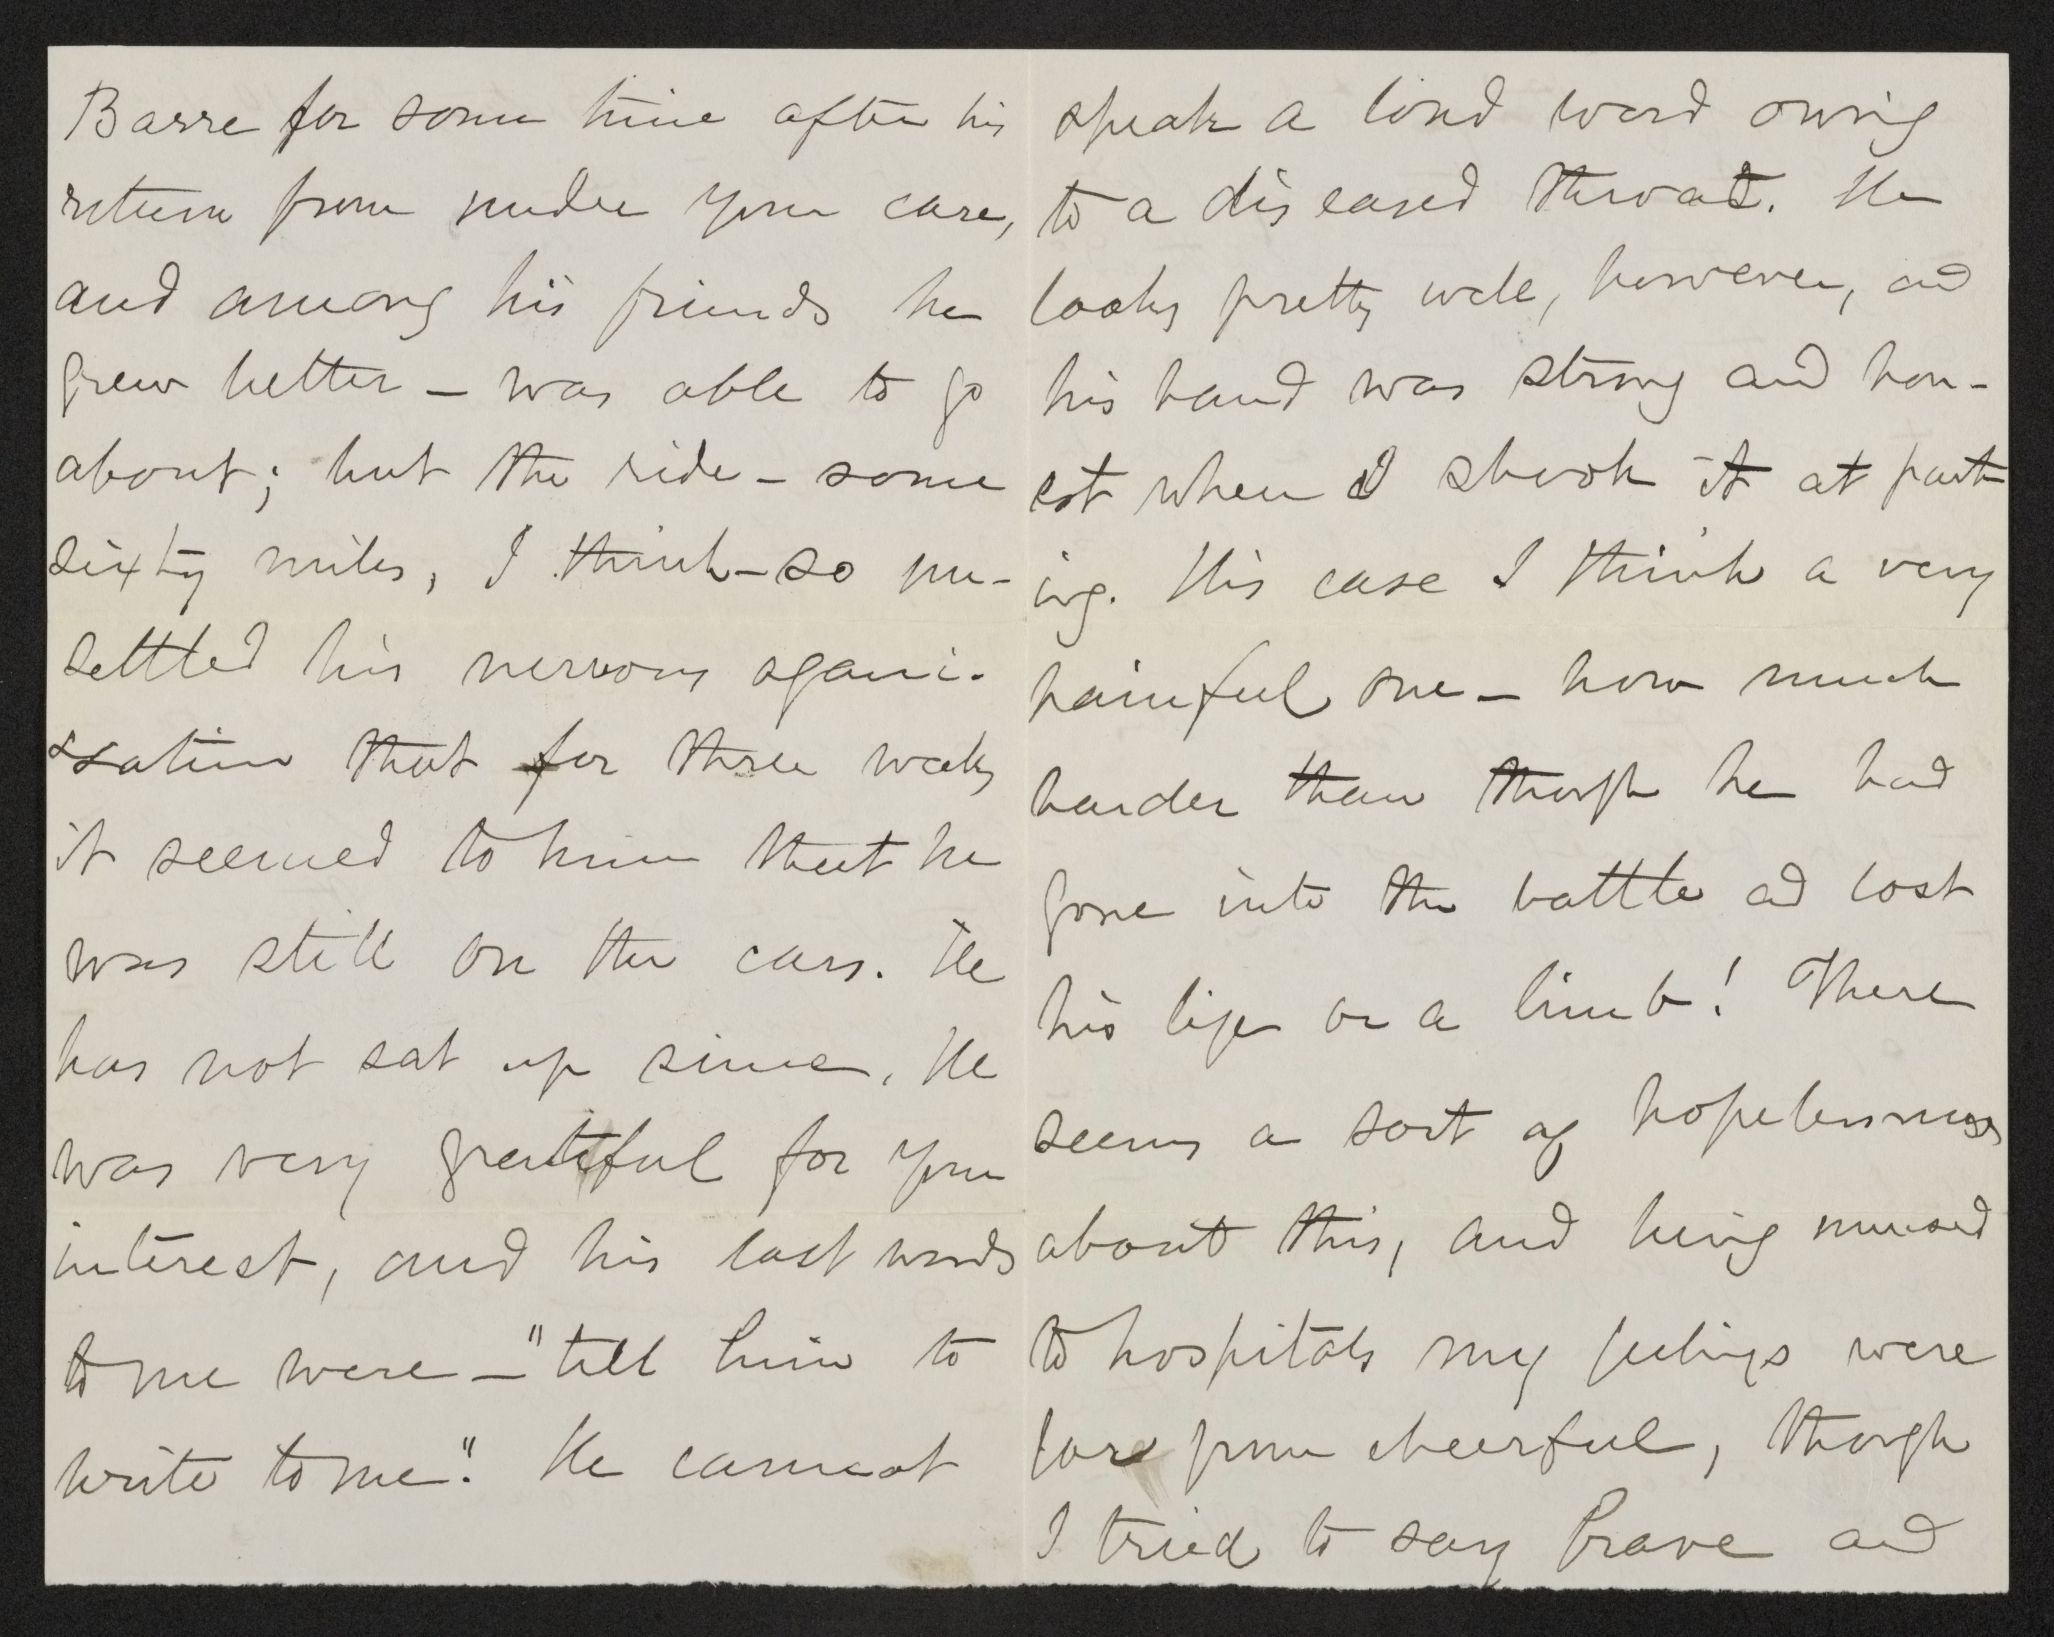 Barre for some time after his
return from under your care,
and among his friends he
grew better – was able to go
about; but the ride – some
sixty miles, I think – so un-
settled his nervous ogani-
zation that for three weeks
it seemed to him that he
was still on the cars. He
has not sat up since. He
was very grateful for your
interest, and his last words
to me were – "tell him to
write to me". He cannot
speak a loud word owing
to a diseased throat. He
looks pretty well, however, and
his hand was strong and hon-
est when I shook it at part-
ing. His case I think a very
painful one – how much
harder than though he had
gone into the battle and lost
his life or a limb! There
seems a sort of hopelessness
about this, and being unused
to hospitals my feelings were
far from cheerful, though
I tried to say brave and